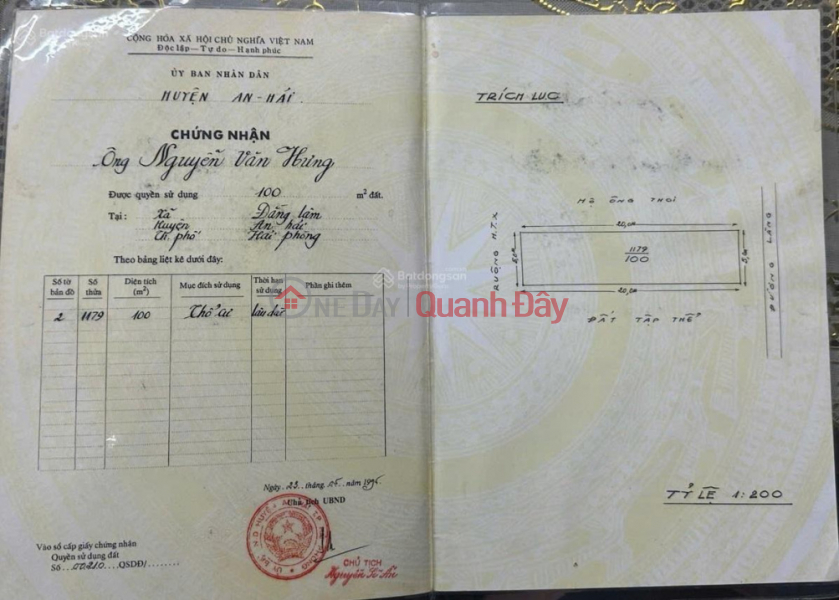 CỘNG HÒA XÃ HỘI CHỦ NGHĨA VIỆT NAM
Độc lập — Tự do — Hạnh phúc
ỦY BAN NHÂN DÂN
HUYỆN AN-HẢI
CHỨNG NHẬN
Ông Nguyễn Văn Hưng
Được quyền sử dụng 100 m² đất.
Tại: Xã Đằng lâm
Huyện An hải
T. phố Hải phòng
Theo bảng liệt kê dưới đây:
Số tờ bản đồ
Số thửa
Diện tích (m²)
Mục đích sử dụng
Thời hạn sử dụng
Phần ghi thêm
2 1179 100 Thổ cư lâu dài
Ngày 23 tháng 05 năm 1996
Chủ tịch UBND
CHỦ TỊCH
Vào sổ cấp giấy chứng nhận
Quyền sử dụng đất
Số 00210 QSDĐ/
TRÍCH LỤC
HỘ ÔNG THOI
20,0m
RUỘNG H.T.X
5,0m
1179
100
5,0m
ĐƯỜNG LÀNG
20,0m
ĐẤT TẬP THỂ
TỶ LỆ 1:200
Batdongsan
ONE DAY Quanh Đây